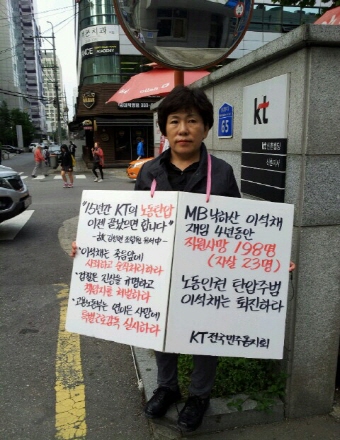 kt
kt
65
"15년간 KT의 노동탄압
이젠 끝났으면 합니다"
-故 김성현 조합원 유서中-
•이석채는 죽음앞에
사죄하고 순직처리하라
•검찰은 진상을 규명하고
책임자를 처벌하라
•고용노동부는 연이은 사망에
특별근로감독 실시하라
MB낙하산 이석채
재임 4년동안
직원사망 198명
(자살 23명)
노동인권 탄압주범
이석채는 퇴진하라
KT전국민주동지회